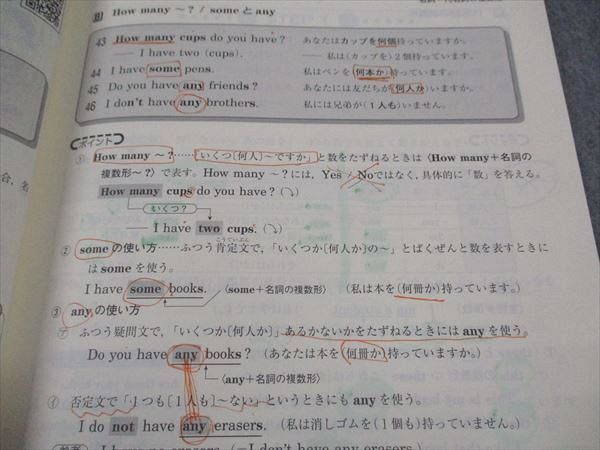 How many ~? / some と any
43 How many cups do you have? あなたはカップを何個持っていますか。
— I have two (cups). —— 私は(カップを)2個持っています。
44 I have some pens. 私はペンを(何本か)持っています。
45 Do you have any friends? あなたには友だちが(何人か)いますか。
46 I don't have any brothers. 私には兄弟が(1人も)いません。
ポイント
① How many ~?……「いくつ〔何人〕~ですか」と数をたずねるときは〈How many+名詞の
複数形~?〉で表す。How many ~? には, Yes / No ではなく, 具体的に「数」を答える。
How many cups do you have? (↘)
いくつ?
— I have two cups. (↘)
② some の使い方……ふつう肯定文で,「いくつか〔何人か〕の~」とばくぜんと数を表すときに
こうていぶん
は some を使う。
I have some books. 〈some+名詞の複数形〉 (私は本を(何冊か)持っています。)
③ any の使い方
㋐ ふつう疑問文で,「いくつか〔何人か〕」あるかないかをたずねるときには any を使う。
Do you have any books? (あなたは本を(何冊か)持っていますか。)
〈any+名詞の複数形〉
㋑ 否定文で「1つも〔1人も〕~ない」というときにも any を使う。
I do not have any erasers. (私は消しゴムを(1個も)持っていません。)
I have no erasers. (=I don't have any erasers.)